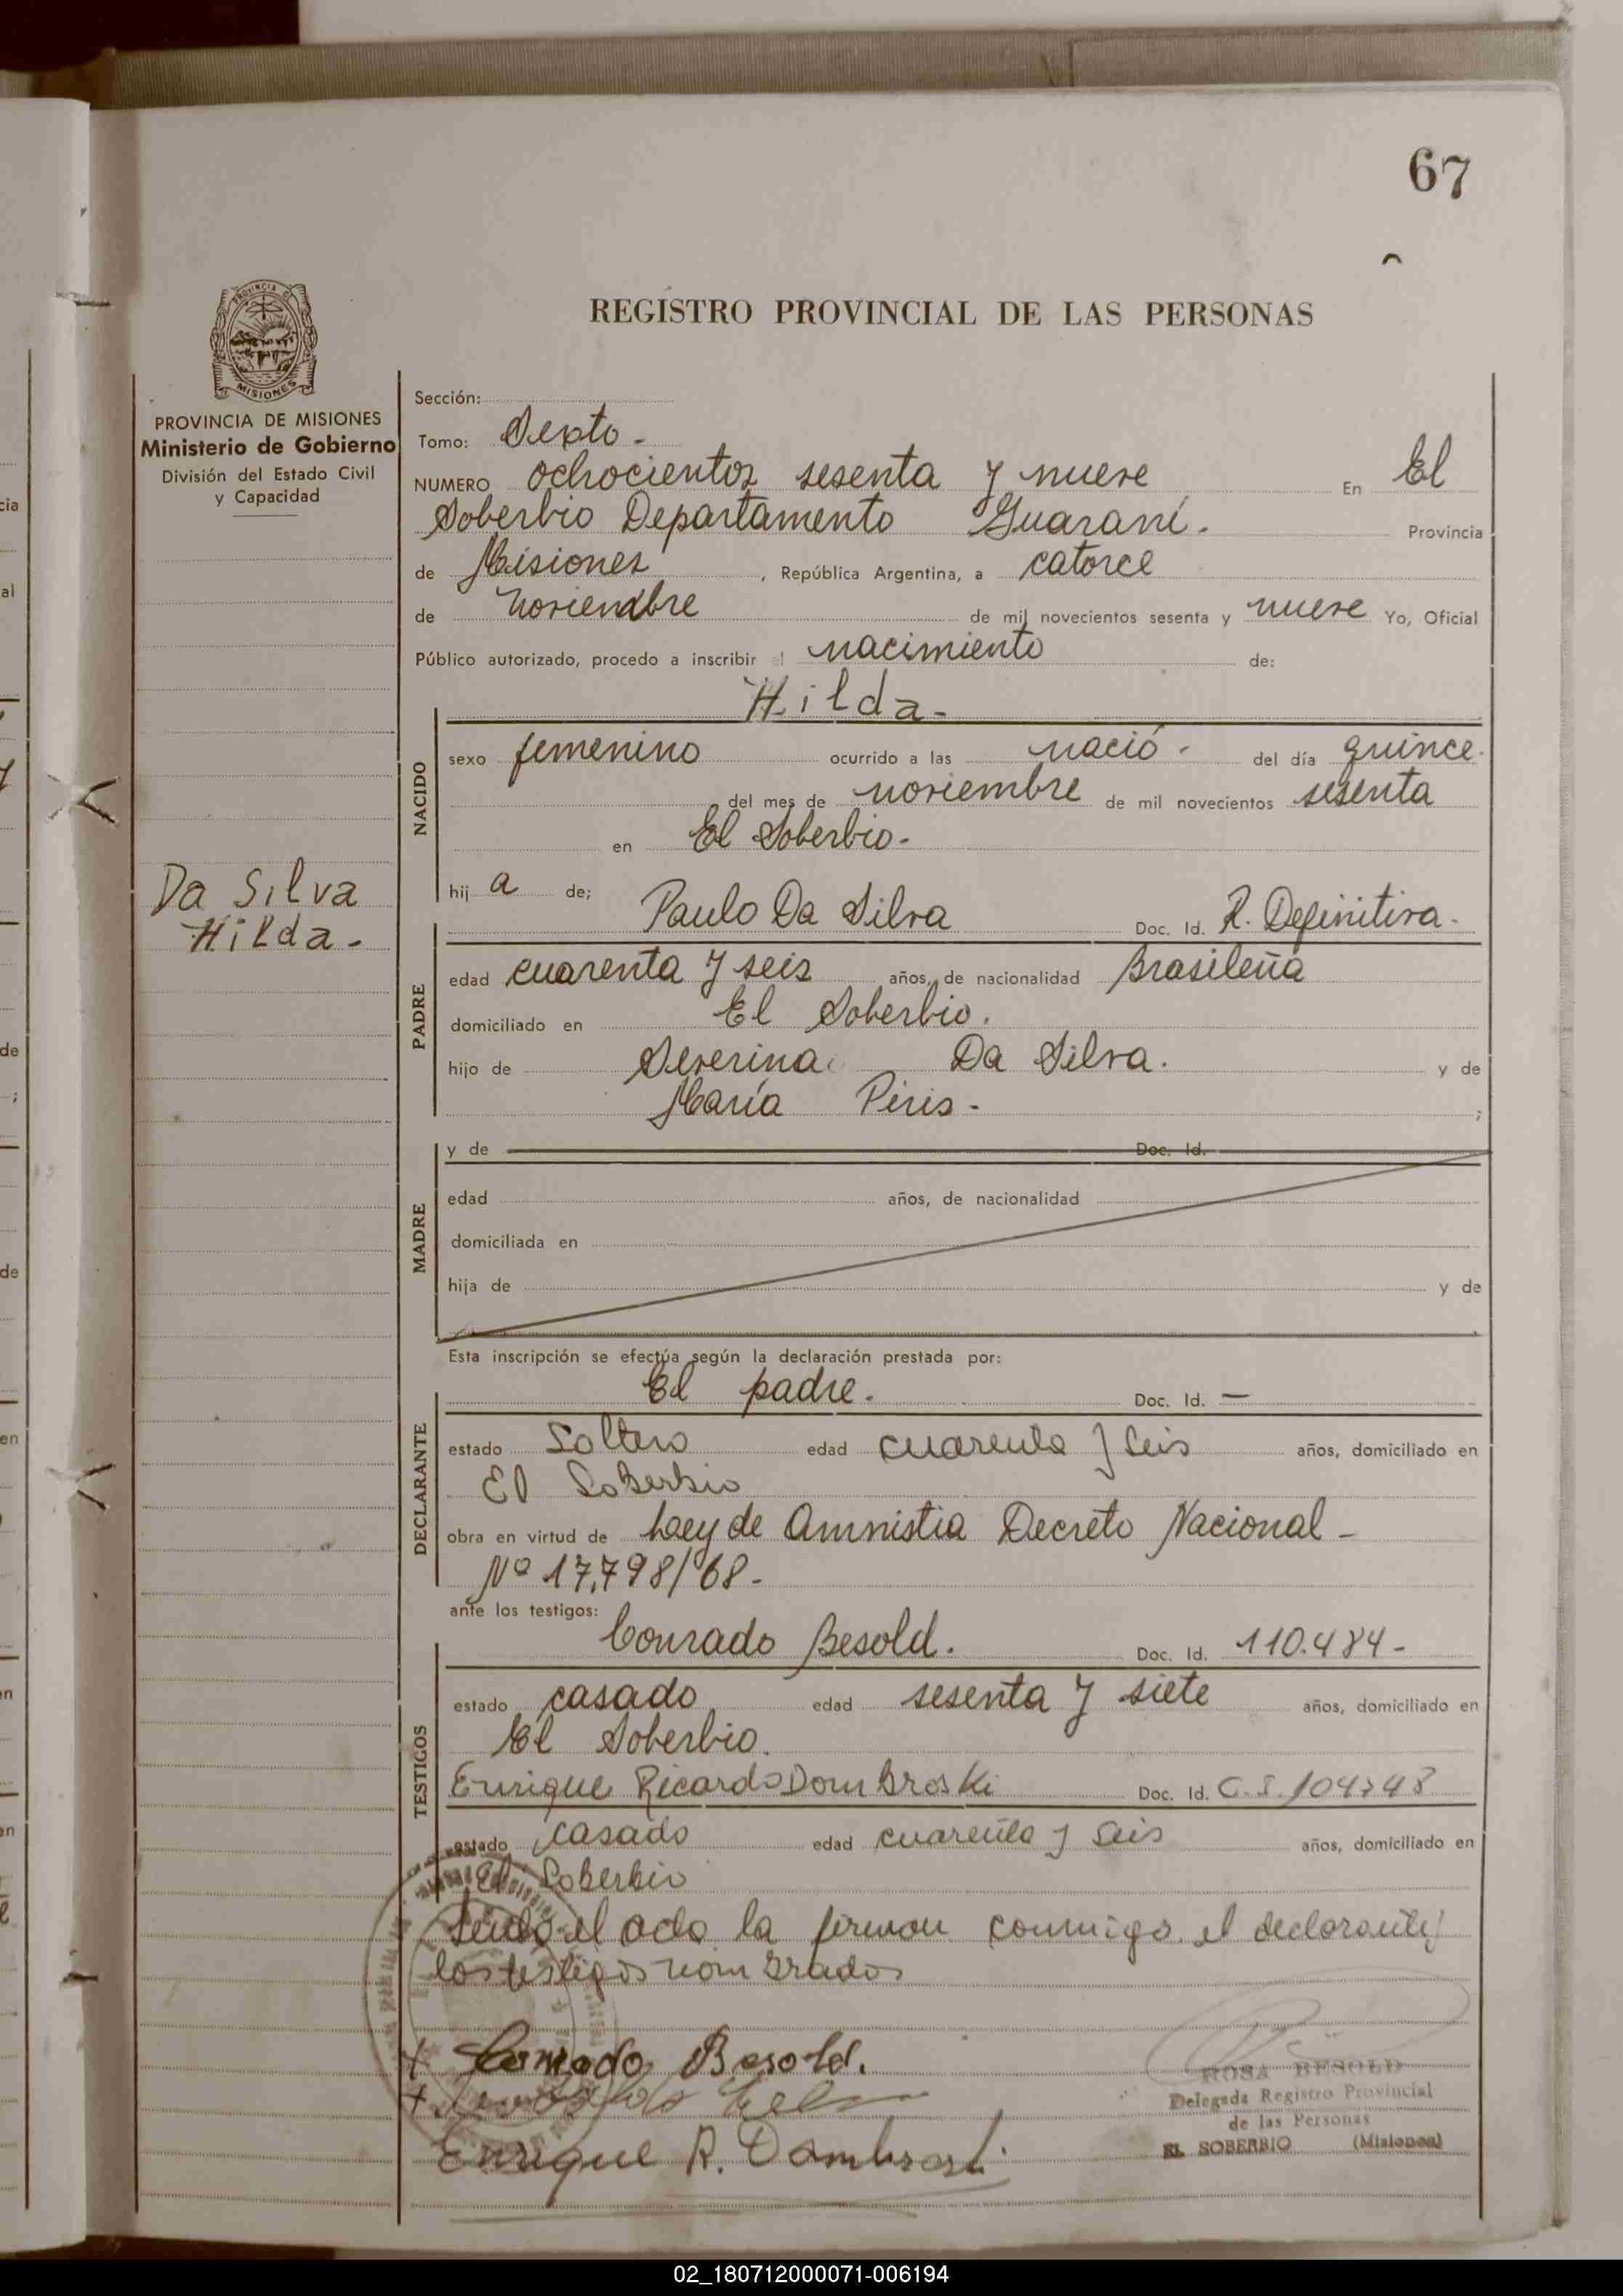 67
REGISTRO PROVINCIAL DE LAS PERSONAS
PROVINCIA DE MISIONES
Ministerio de Gobierno
División del Estado Civil
y Capacidad
Sección:
Tomo: Sexto -
NUMERO ochocientos sesenta y nueve En El
Soberbio Departamento Guaraní. Provincia
de Misiones, República Argentina, a catorce
de noviembre de mil novecientos sesenta y nueve Yo, Oficial
Público autorizado, procedo a inscribir el nacimiento de:
Hilda -
NACIDO
sexo femenino ocurrido a las nació - del día quince.
del mes de noviembre de mil novecientos sesenta
en El Soberbio -
hija de;
Da Silva
Hilda -
Paulo Da Silva Doc. Id. R. Definitiva -
PADRE
edad cuarenta y seis años, de nacionalidad Brasileña
domiciliado en El Soberbio.
hijo de Severina Da Silva. y de
María Piris - ;
MADRE
y de Doc. Id.
edad años, de nacionalidad
domiciliada en
hija de y de
Esta inscripción se efectúa según la declaración prestada por:
El padre. Doc. Id. —
DECLARANTE
estado Soltero edad cuarenta y seis años, domiciliado en
El Soberbio
obra en virtud de Ley de Amnistia Decreto Nacional -
Nº 17,798/68 -
ante los testigos:
Conrado Besold. Doc. Id. 110.484 -
TESTIGOS
estado casado edad sesenta y siete años, domiciliado en
El Soberbio.
Enrique Ricardo Dombroski Doc. Id. C.I. 104748
estado casado edad cuarenta y seis años, domiciliado en
El Soberbio
Leido el acta la firman conmigo el declarante y
los testigos nombrados
+ Conrado Besold.
Enrique R. Dombroski
ROSA BESOLD
Delegada Registro Provincial
de las Personas
EL SOBERBIO (Misiones)
02_180712000071-006194